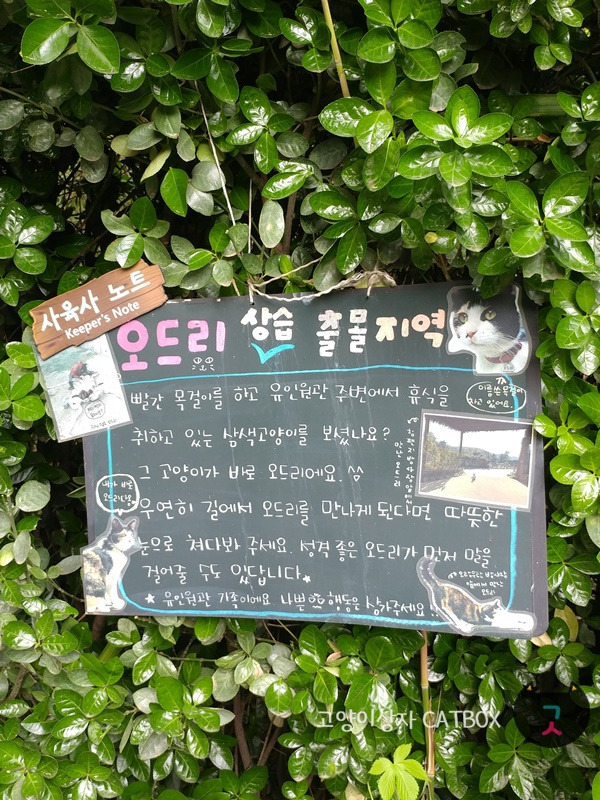 사육사 노트
Keeper's Note
오드리 상습 출몰 지역
빨간 목걸이를 하고 유인원관 주변에서 휴식을
취하고 있는 삼색고양이를 보셨나요?
그 고양이가 바로 오드리에요. ^^
우연히 길에서 오드리를 만나게 된다면 따뜻한
눈으로 쳐다봐 주세요. 성격 좋은 오드리가 먼저 말을
걸어줄 수도 있답니다.★
★ 유인원관 가족이에요 나쁜 행동은 삼가주세요!!
이름쓴 목걸이
하고 있어요.
내가 바로
오드리다옹
고양이상자 CATBOX